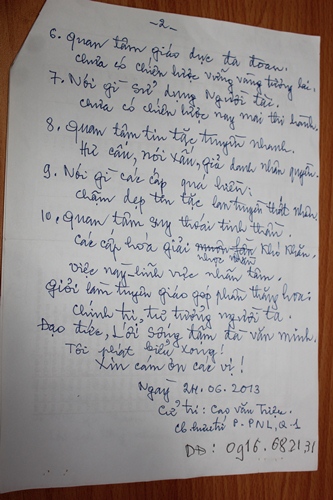 -2-
6. Quan tâm giáo dục đa đoan.
Chưa có chiến lược vững vàng tương lai.
7. Nói gì sử dụng Người tài.
Chưa có chiến lược nay mai thi hành.
8. Quan tâm tin tặc truyền nhanh.
Hư cấu, nói xấu, giả danh nhân quyền.
9. Nói gì các cấp quá hiền.
Chậm dẹp tin tặc lan truyền thất nhân.
10. Quan tâm suy thoái tinh thần.
Các cấp hóa giải Khó Khăn.
nhọc nhằn
Việc này lĩnh việc nhân tâm.
Giới làm tuyên giáo góp phần thăng hoa.
Chính trị, tư tưởng người ta.
Đạo đức, lối sống đậm đà văn minh.
Tôi phát biểu xong!
Xin cám ơn các vị!
Ngày 24.06.2013
Cử tri: Cao Văn Triệu
Cb hưu trí P. PNL, Q-1
DĐ: 0916.682131